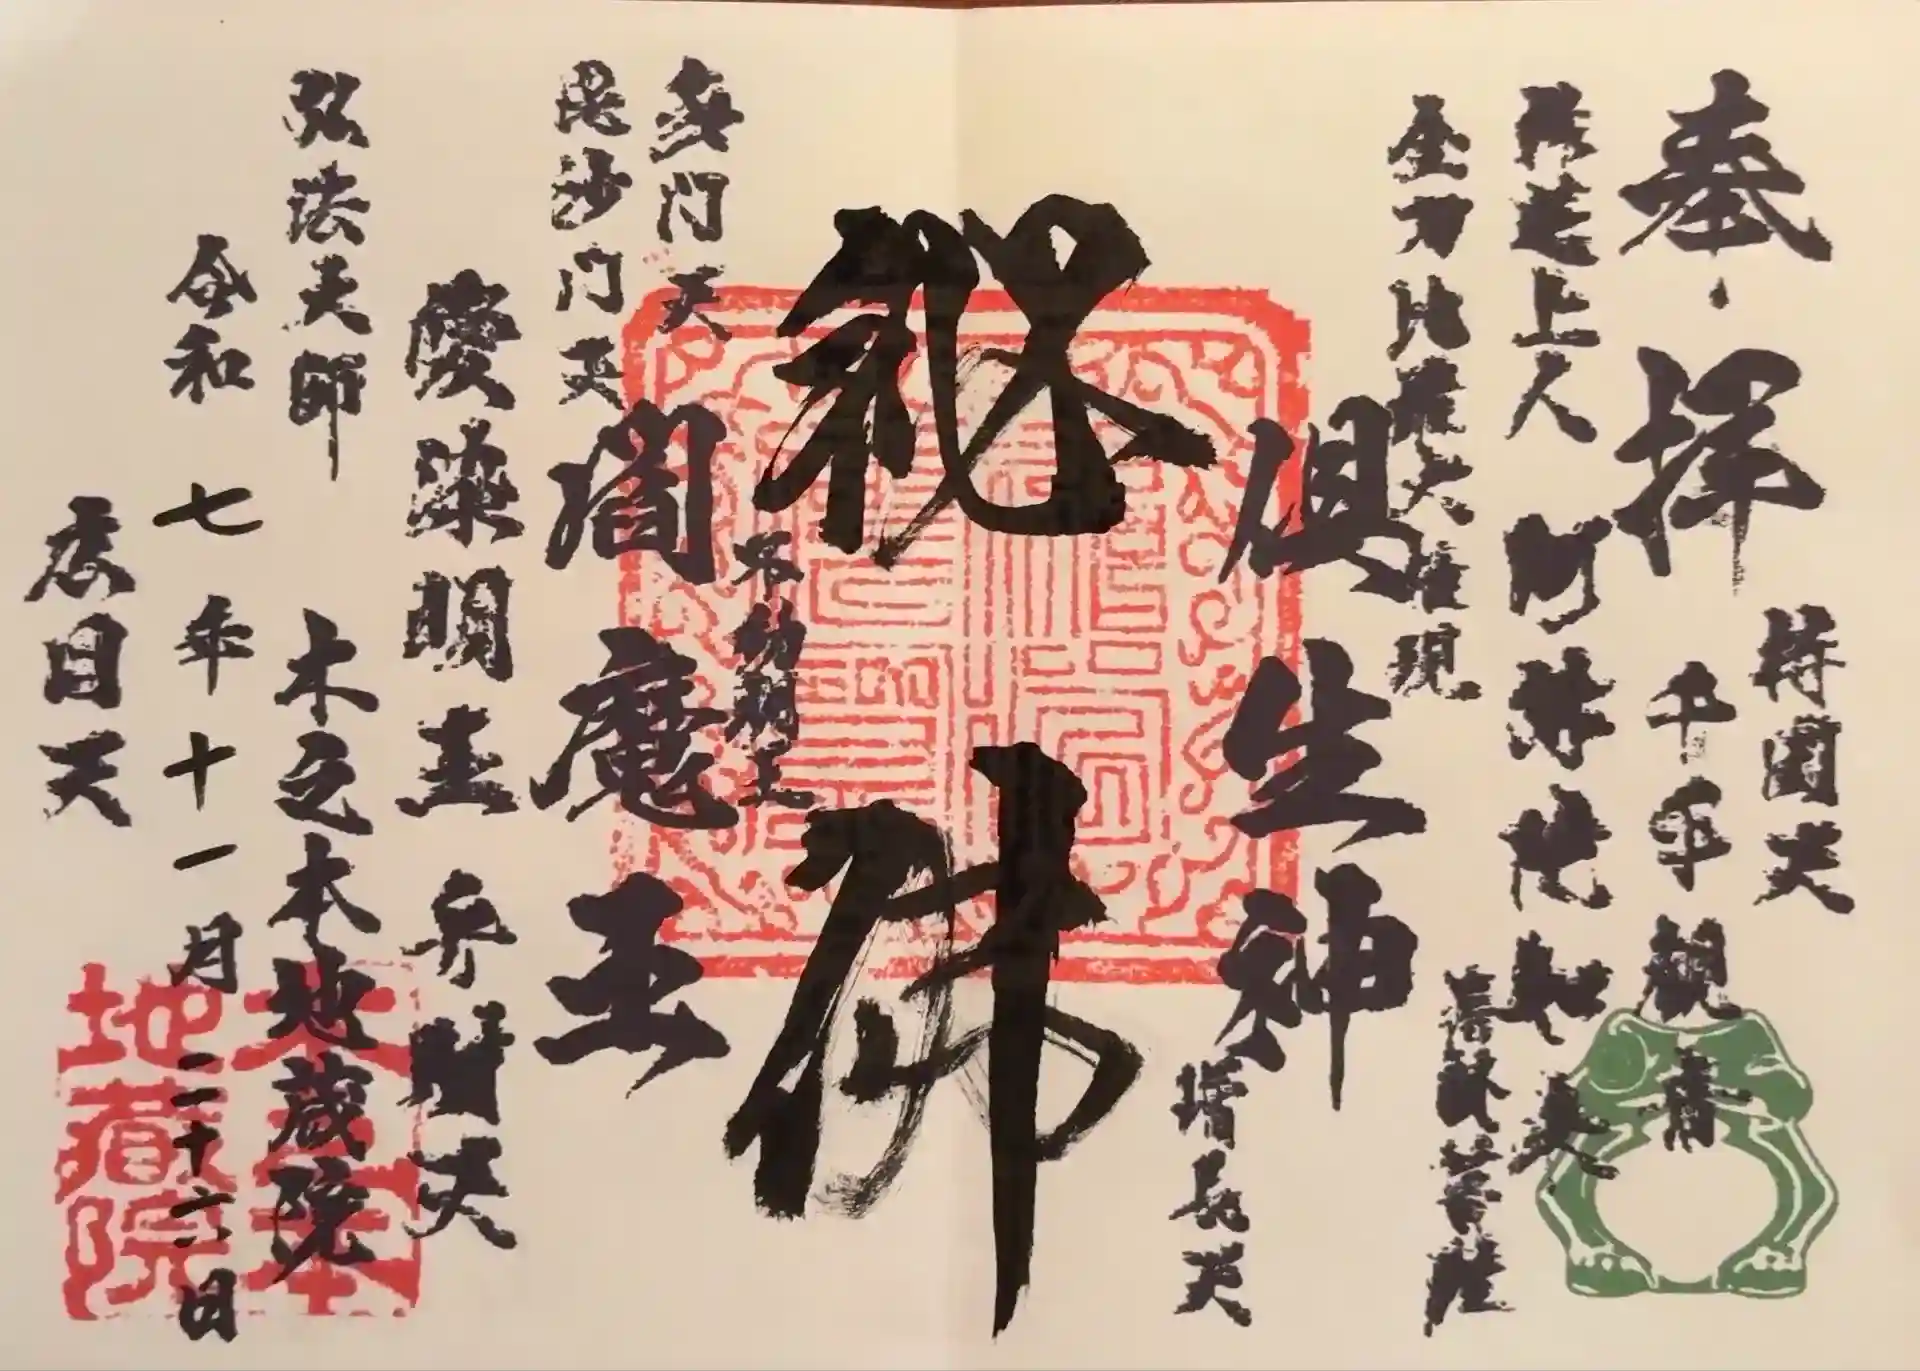 奉拝
持国天
千手観音
祐造上人
阿弥陀如来
金刀比羅大権現
善財菩薩
倶生神
増長天
秘仏
不動明王
多門天
閻魔王
毘沙門天
愛染明王
弁財天
弘法大師
木之本地蔵院
令和七年十一月二十六日
広目天
木之本
地蔵院